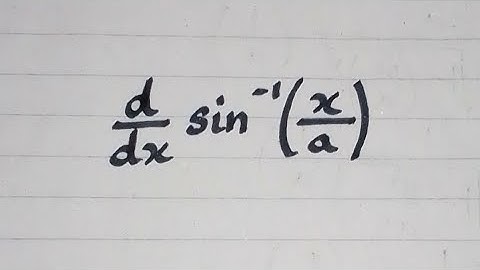 d/dx sin⁻¹(x/a)